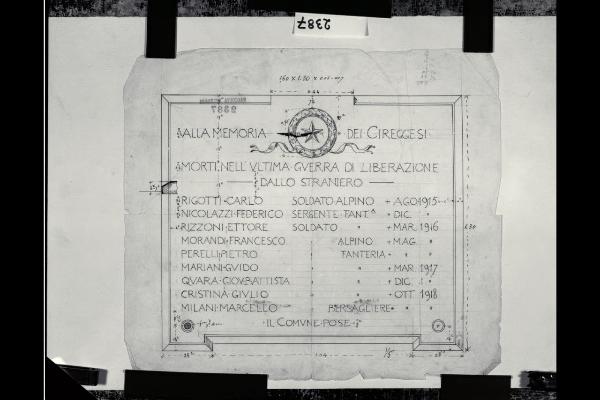 2387
2387
ALLA MEMORIA DEI CIREGGESI
MORTI NELL'VLTIMA GVERRA DI LIBERAZIONE
DALLO STRANIERO
RIGOTTI CARLO SOLDATO ALPINO + AGO 1915
NICOLAZZI FEDERICO SERGENTE FANT.A + DIC. "
RIZZONI ETTORE SOLDATO " + MAR. 1916
MORANDI FRANCESCO " ALPINO + MAG. "
PERELLI PIETRO " FANTERIA + " "
MARIANI GVIDO " " + MAR. 1917
QVARA GIOV.BATTISTA " " + DIC. "
CRISTINA GIVLIO " " + OTT. 1918
MILANI MARCELLO BERSAGLIERE + " "
IL COMVNE POSE
1/5